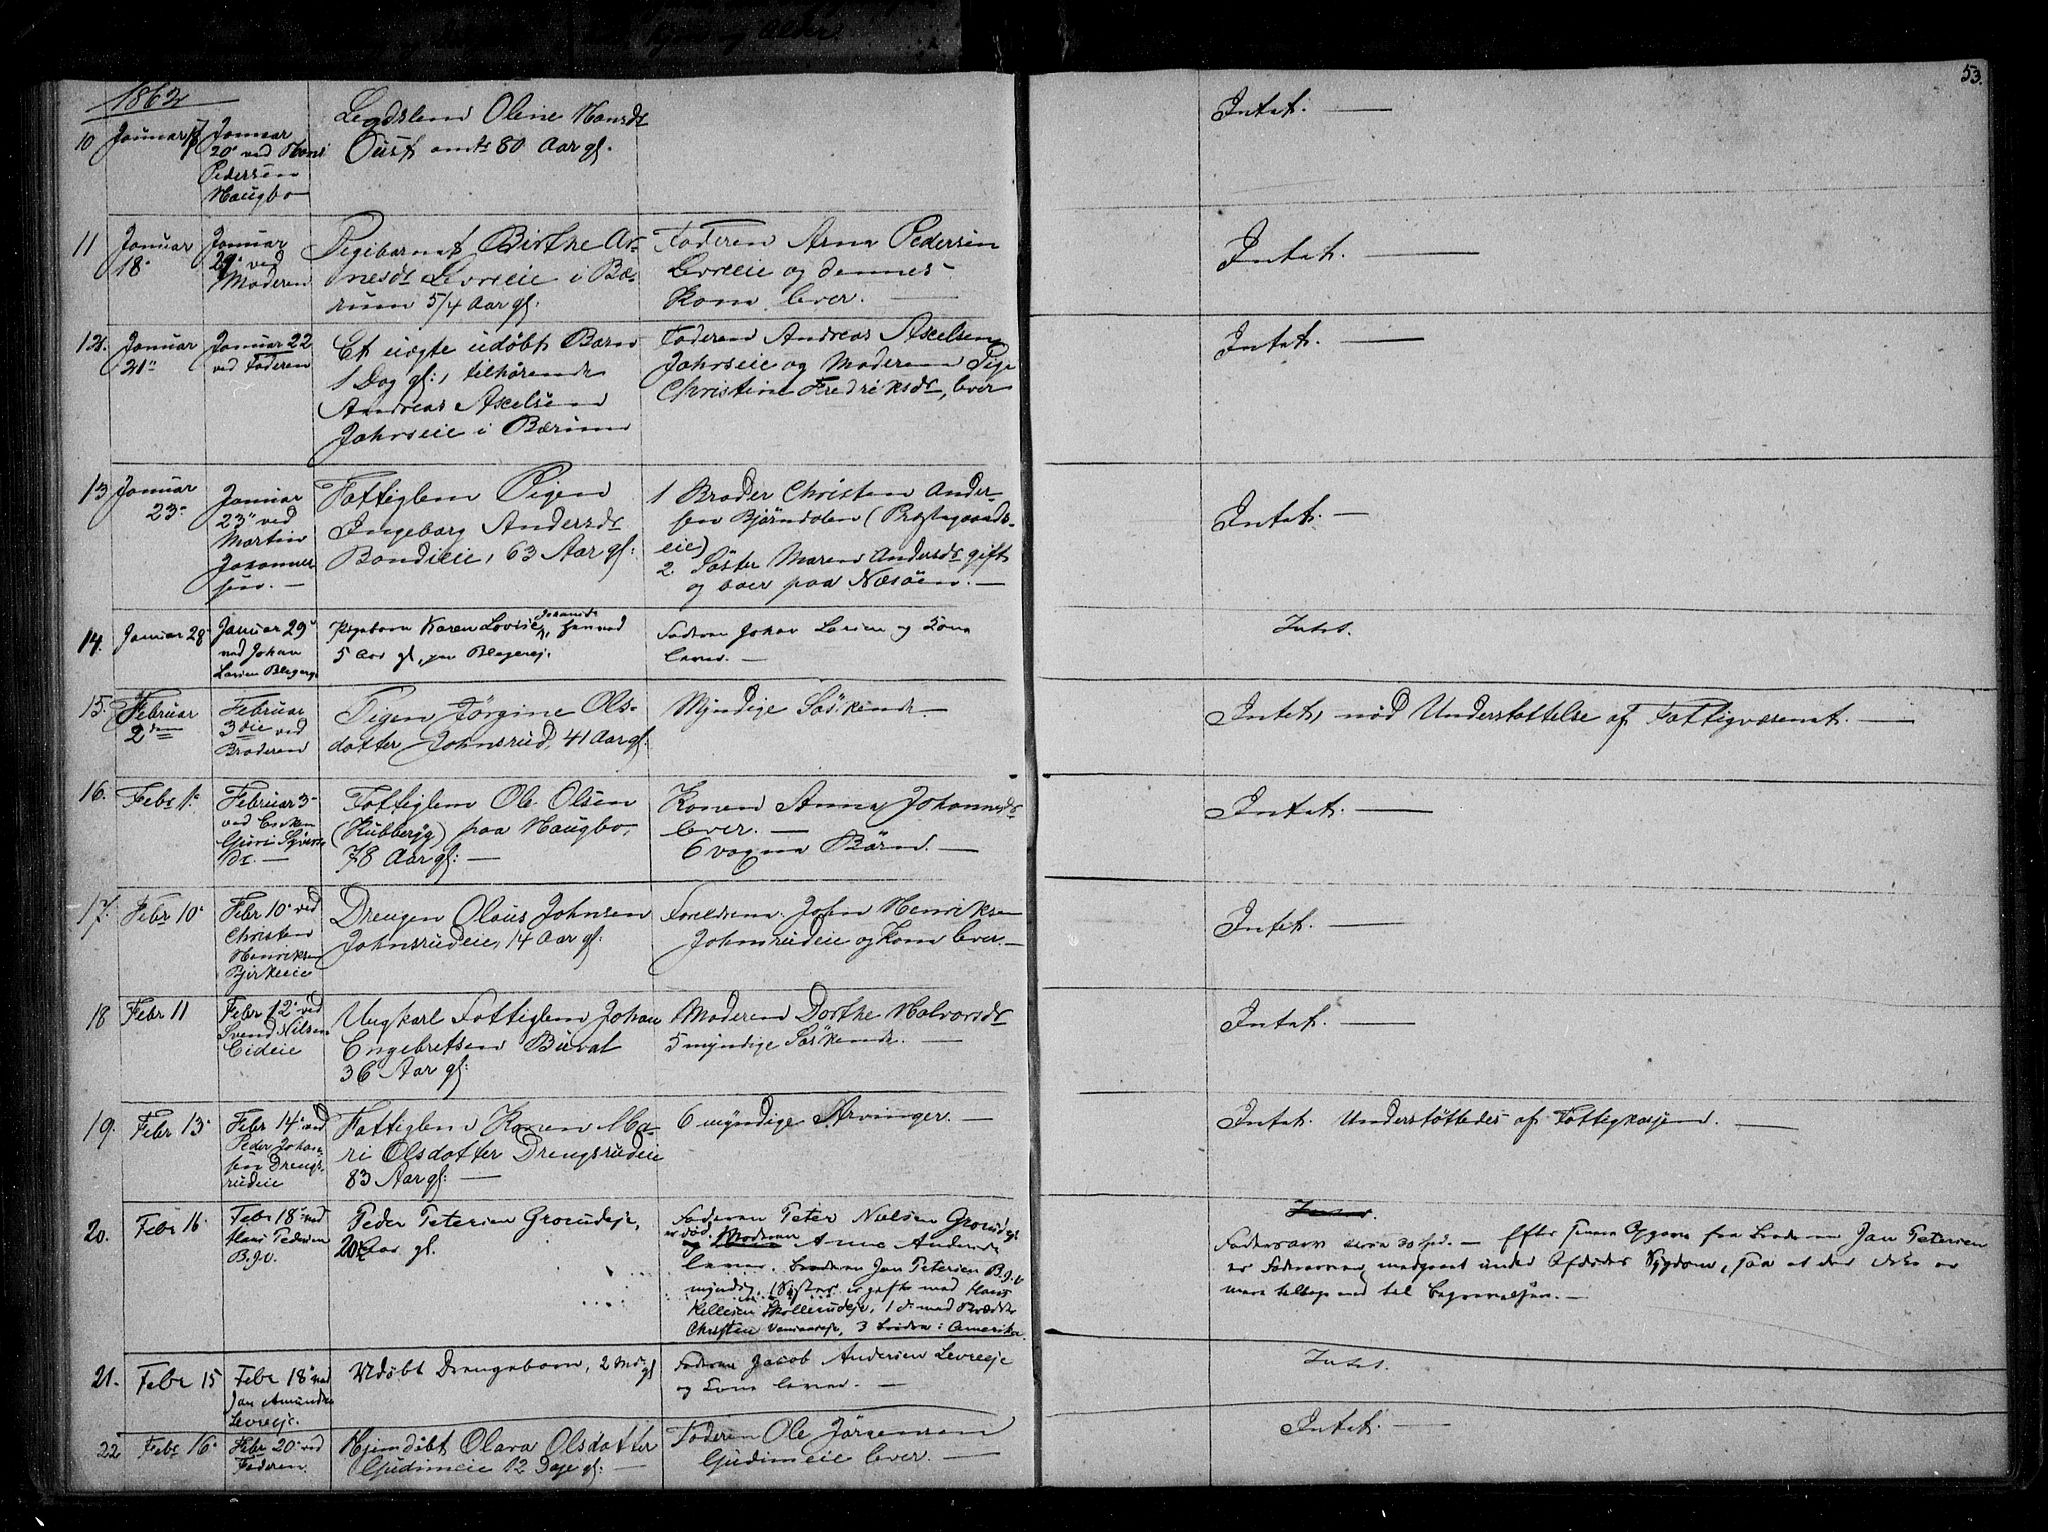 53.
1862
10 Januar 17 Januar 20. ved Hans Pedersen Haugbo
Legdslem Oline Hansdr
Oust omtr 80 Aar gl.
Intet. —
11 Januar 18. Januar 29. ved Moderen
Pigebarnet Birthe Ar-
nesdr Levreeie i Bæ-
rum 5/4 Aar gl:
Faderen Arne Pedersen
Levreeie og dennes
Kone lever. —
Intet. —
12. Januar 21. Januar 22 ved Faderen
Et uægte udøbt Barn
1 Dag gl:, tilhørende
Andreas Axelsen
Jahrseie i Bærum
Faderen Andreas Axelsen
Jahrseie og Moderen Pige
Christine Fredriksdr, lever
Intet. —
13 Januar 23. Januar 23. ved Martin Johannes-
sen. —
Fattiglem Pigen
Ingeborg Andersdr
Bondieie, 63 Aar gl:
1 Broder Christen Ander-
sen Bjørndalen (Præstegaards-
eie)
2. Søster Maren Andersdr gift
og boer paa Næsøen. —
Intet. —
14. Januar 28. Januar 29. ved Johan
Larsen
Pigebarn Karen Lovise Johansdr
5 Aar gl,
Faderen Johan Larsen og Kone
lever. —
Intet.
15. Februar 2den Februar 3die ved Broderen
Pigen Jørgine Ols-
datter Johnsrud, 41 Aar gl:
Myndige Søskende. —
Intet, nød Understøttelse af Fattigvæsenet. —
16. Febr 1. Februar 3. ved Enken
Guri Syvers-
dr. —
Fattiglem Ole Olsen
(Kubberyg) paa Haugbo,
78 Aar gl: —
Konen Anna Johannesdr
lever. —
6 vogne Børn. —
Intet. —
17. Febr 10. Febr 10. ved Christen
Henriksen
Bjerkeeie
Drengen Olaus Johnsen
Johnsrudeie, 14 Aar gl:
Foreldrene John Henriksen
Johnsrudeie og Kone lever. —
Intet. —
18 Febr 11 Febr 12. ved
Svend Nilsen
Eideie
Ungkarl Fattiglem Johan
Engebretsen Burat
36 Aar gl:
Moderen Dorthe Halvorsdr
5 myndige Søskende. —
Intet. —
19. Febr 13. Febr 14. ved
Peder Johan-
sen Drengs-
rudeie
Fattiglem Konen Ma-
ri Olsdatter Drengsrudeie
83 Aar gl: —
6 myndige Arvinger. —
Intet. Understøttedes af Fattigkassen. —
20. Febr 16. Febr 18. ved
Hans Pedersen
Peder Petersen Grorudeje,
20 Aar gl.
Faderen Peter Nielsen Grorudeje
er død. Moderen Anne Andersdr
lever. Broderen Jan Petersen
myndig. 1 Søster er gift med Hans
Skollerudeje, 1 do med
Christen 3 Brødre i Amerika.
Intet.
Fadersarv circa 30 Spd. — Efter Opgave fra Broderen Jan Petersen
er Fadersarven medgaaet under Afdødes Sygdom, saa at der ikke er
mere tilbage end til Begravelsen. —
21. Febr 15 Febr 18. ved
Jan Amundsen
Levreeje.
Udøbt Drengebarn, 2 Mdr gl
Faderen Jacob Andersen Levreeje
og Kone lever. —
Intet.
22 Febr 16. Febr 20. ved
Faderen.
Hjemdøbt Olava Olsdatter
Gudimeie 12 Dage gl: —
Faderen Ole Jørgensen
Gudimeie lever. —
Intet. —